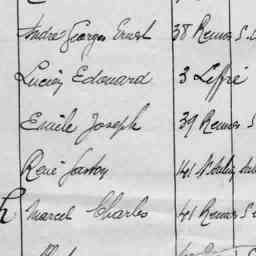 André Georges Ernest 38 Reims S
Lucien Edouard 3 Leffié
Emile Joseph 39 Reims S
René Gaston 141
h Marcel Charles 41 Reims S